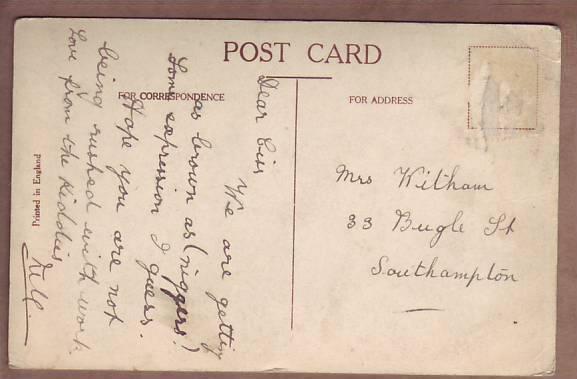 POST CARD
FOR CORRESPONDENCE
FOR ADDRESS
Dear Ciss
We are getting
as brown as (niggers!)
Some expression I guess.
Hope you are not
being rushed with work
Love from the Kiddies
Mrs Witham
33 Bugle St
Southampton
Printed in England